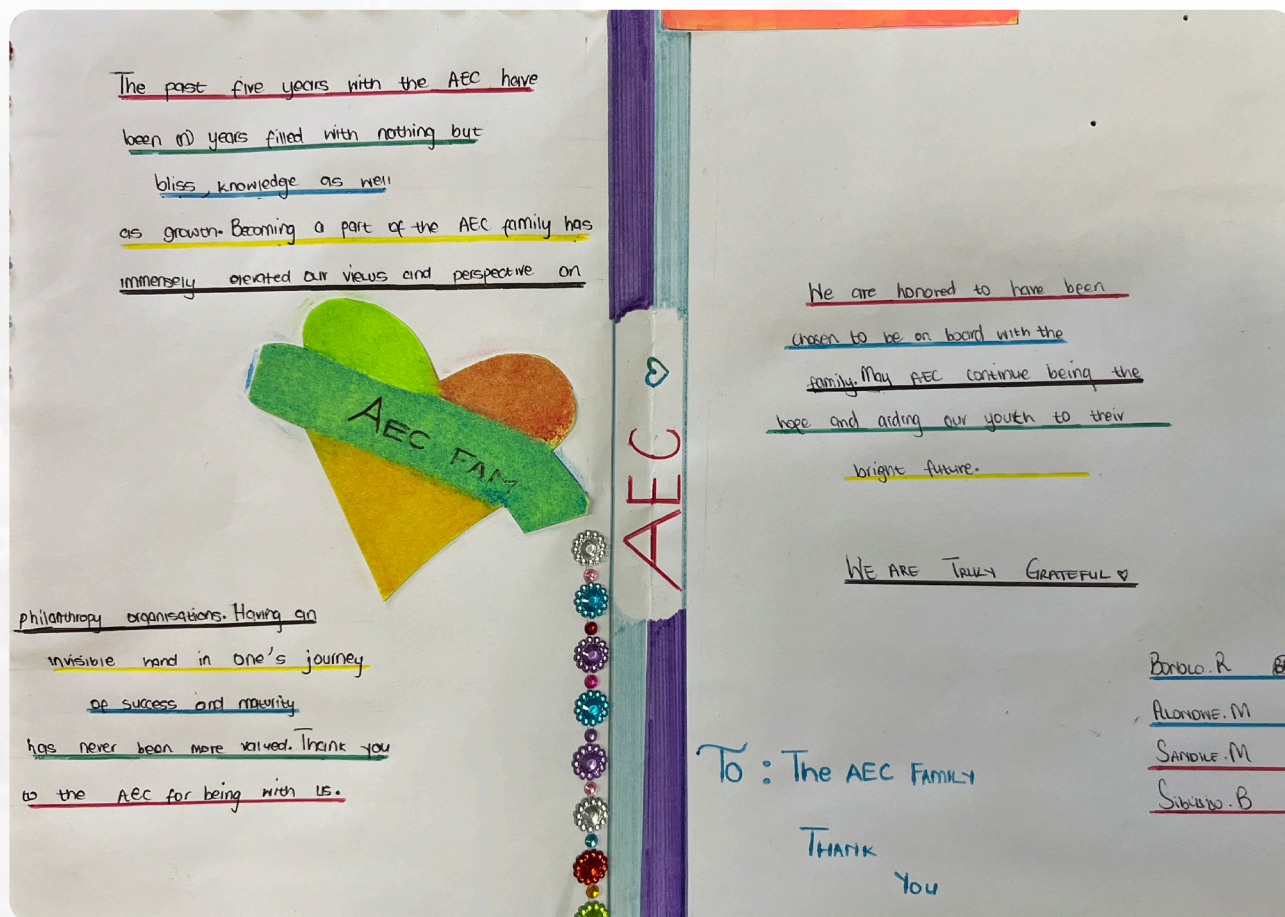 The past five years with the AEC have
been (5) years filled with nothing but
bliss, knowledge as well
as growth. Becoming a part of the AEC family has
immensely elevated our views and perspective on
AEC FAM
philanthropy organisations. Having an
invisible hand in one's journey
of success and maturity
has never been more valued. Thank you
to the AEC for being with us.
AEC ♡
We are honored to have been
chosen to be on board with the
family. May AEC continue being the
hope and aiding our youth to their
bright future.
WE ARE TRULY GRATEFUL ♡
BONOLO. R
ALONDWE. M
SANDILE. M
SIBUSISO. B
To : The AEC FAMILY
THANK
You